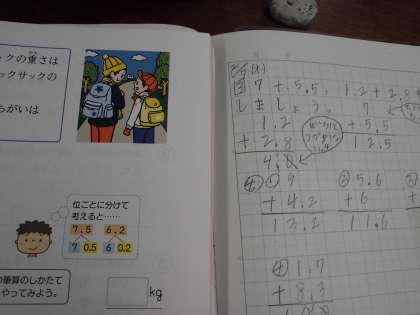 クの重さは
ックサックの
ちがいは
位ごとに分けて
考えると……
7.5 6.2
7 0.5 6 0.2
の筆算のしかた
やってみよう。
kg
7+5.5, 1.2+2.8
しましょう。
1.2
+2.8
4.0
7
+5.5
12.5
④ ① 9
+4.2
13.2
② 5.6
+6
11.6
④ 1.7
+8.3